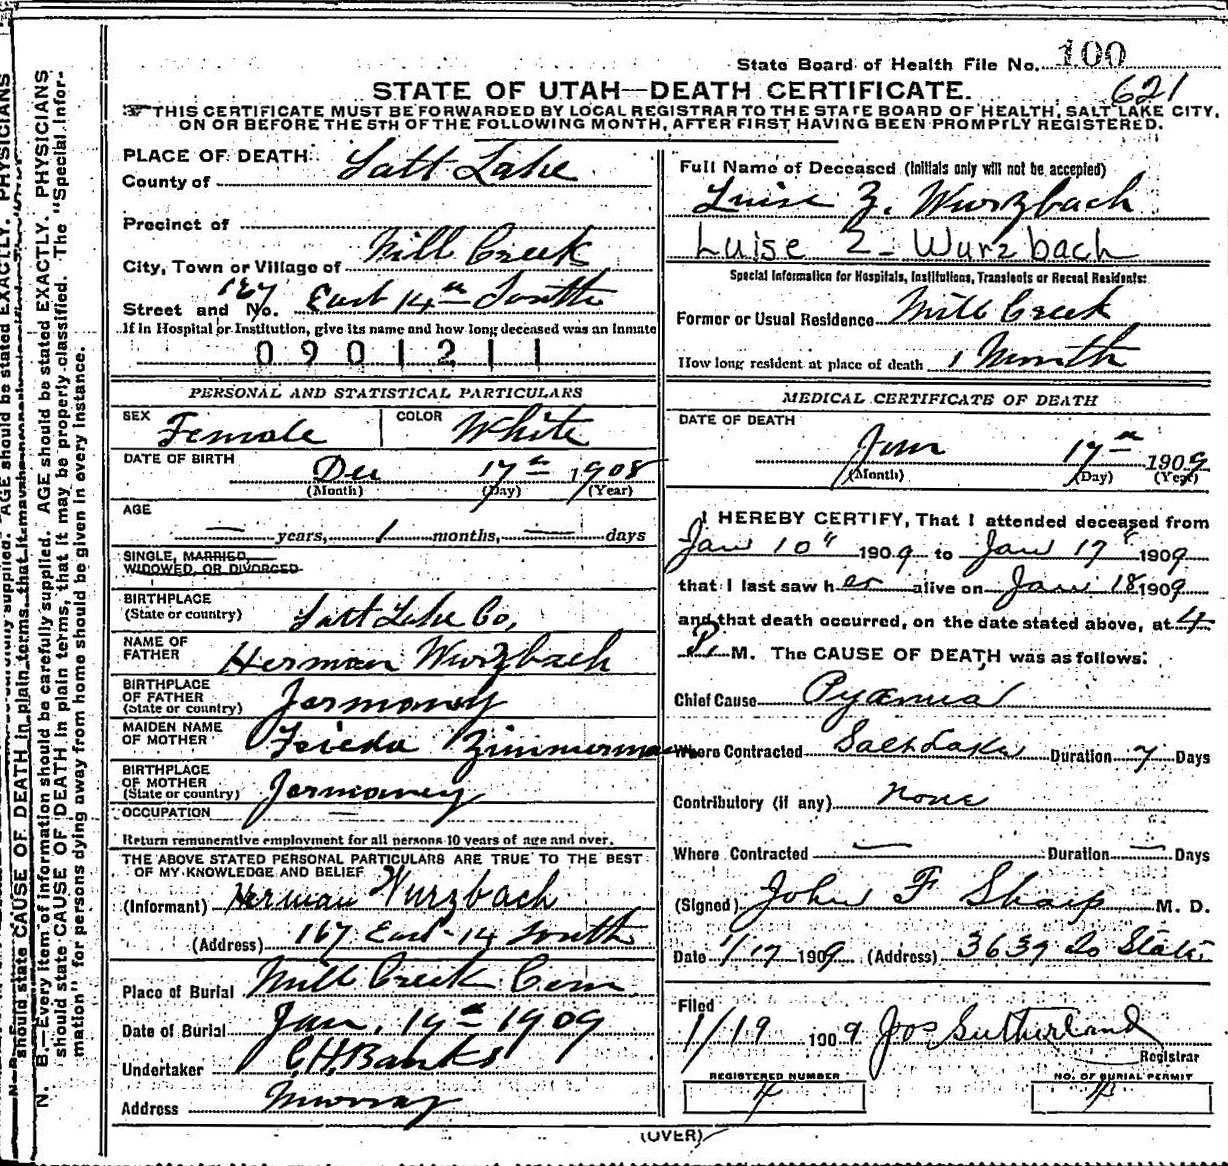 State Board of Health File No. 100
621
STATE OF UTAH—DEATH CERTIFICATE.
☞THIS CERTIFICATE MUST BE FORWARDED BY LOCAL REGISTRAR TO THE STATE BOARD OF HEALTH, SALT LAKE CITY,
ON OR BEFORE THE 5TH OF THE FOLLOWING MONTH, AFTER FIRST HAVING BEEN PROMPTLY REGISTERED.
PLACE OF DEATH:
County of Salt Lake
Precinct of
City, Town or Village of Mill Creek
Street and No. 167 East 14th South
If in Hospital or Institution, give its name and how long deceased was an inmate
0901211
PERSONAL AND STATISTICAL PARTICULARS
SEX Female COLOR White
DATE OF BIRTH Dec 17th 1908
(Month) (Day) (Year)
AGE
— years, 1 months, — days
SINGLE, MARRIED,
WIDOWED, OR DIVORCED
BIRTHPLACE
(State or country) Salt Lake Co,
NAME OF
FATHER Herman Wurzbach
BIRTHPLACE
OF FATHER
(State or country) Jermaney
MAIDEN NAME
OF MOTHER Frieda Zimmerman
BIRTHPLACE
OF MOTHER
(State or country) Jermaney
OCCUPATION —
Return remunerative employment for all persons 10 years of age and over.
THE ABOVE STATED PERSONAL PARTICULARS ARE TRUE TO THE BEST
OF MY KNOWLEDGE AND BELIEF
(Informant) Herman Wurzbach
(Address) 167 East 14 South
Place of Burial Mill Creek Cem.
Date of Burial Jan. 19th 1909
Undertaker C.H. Banks
Address Murray
Full Name of Deceased (Initials only will not be accepted)
Luise Z. Wurzbach
Luise Z- Wurzbach
Special Information for Hospitals, Institutions, Transients or Recent Residents:
Former or Usual Residence Mill Creek
How long resident at place of death 1 Month
MEDICAL CERTIFICATE OF DEATH
DATE OF DEATH
Jan 17th 1909
(Month) (Day) (Year)
I HEREBY CERTIFY, That I attended deceased from
Jan 10" 1909 to Jan 17" 1909
that I last saw her alive on Jan 18 1909
and that death occurred, on the date stated above, at 4
P. M. The CAUSE OF DEATH was as follows:
Chief Cause Pyæmia
Where Contracted Salt Lake Duration 7 Days
Contributory (if any) none
Where Contracted — Duration — Days
(Signed) John F Sharp M. D.
Date 1/17 1909 (Address) 3639 So State
Filed
1/19 1909 Jos Sutherland
Registrar
REGISTERED NUMBER
4
NO. OF BURIAL PERMIT
4
(OVER)
N. B.—Every item of information should be carefully supplied. AGE should be stated EXACTLY. PHYSICIANS
should state CAUSE OF DEATH in plain terms, that it may be properly classified. The "Special Infor-
mation" for persons dying away from home should be given in every instance.